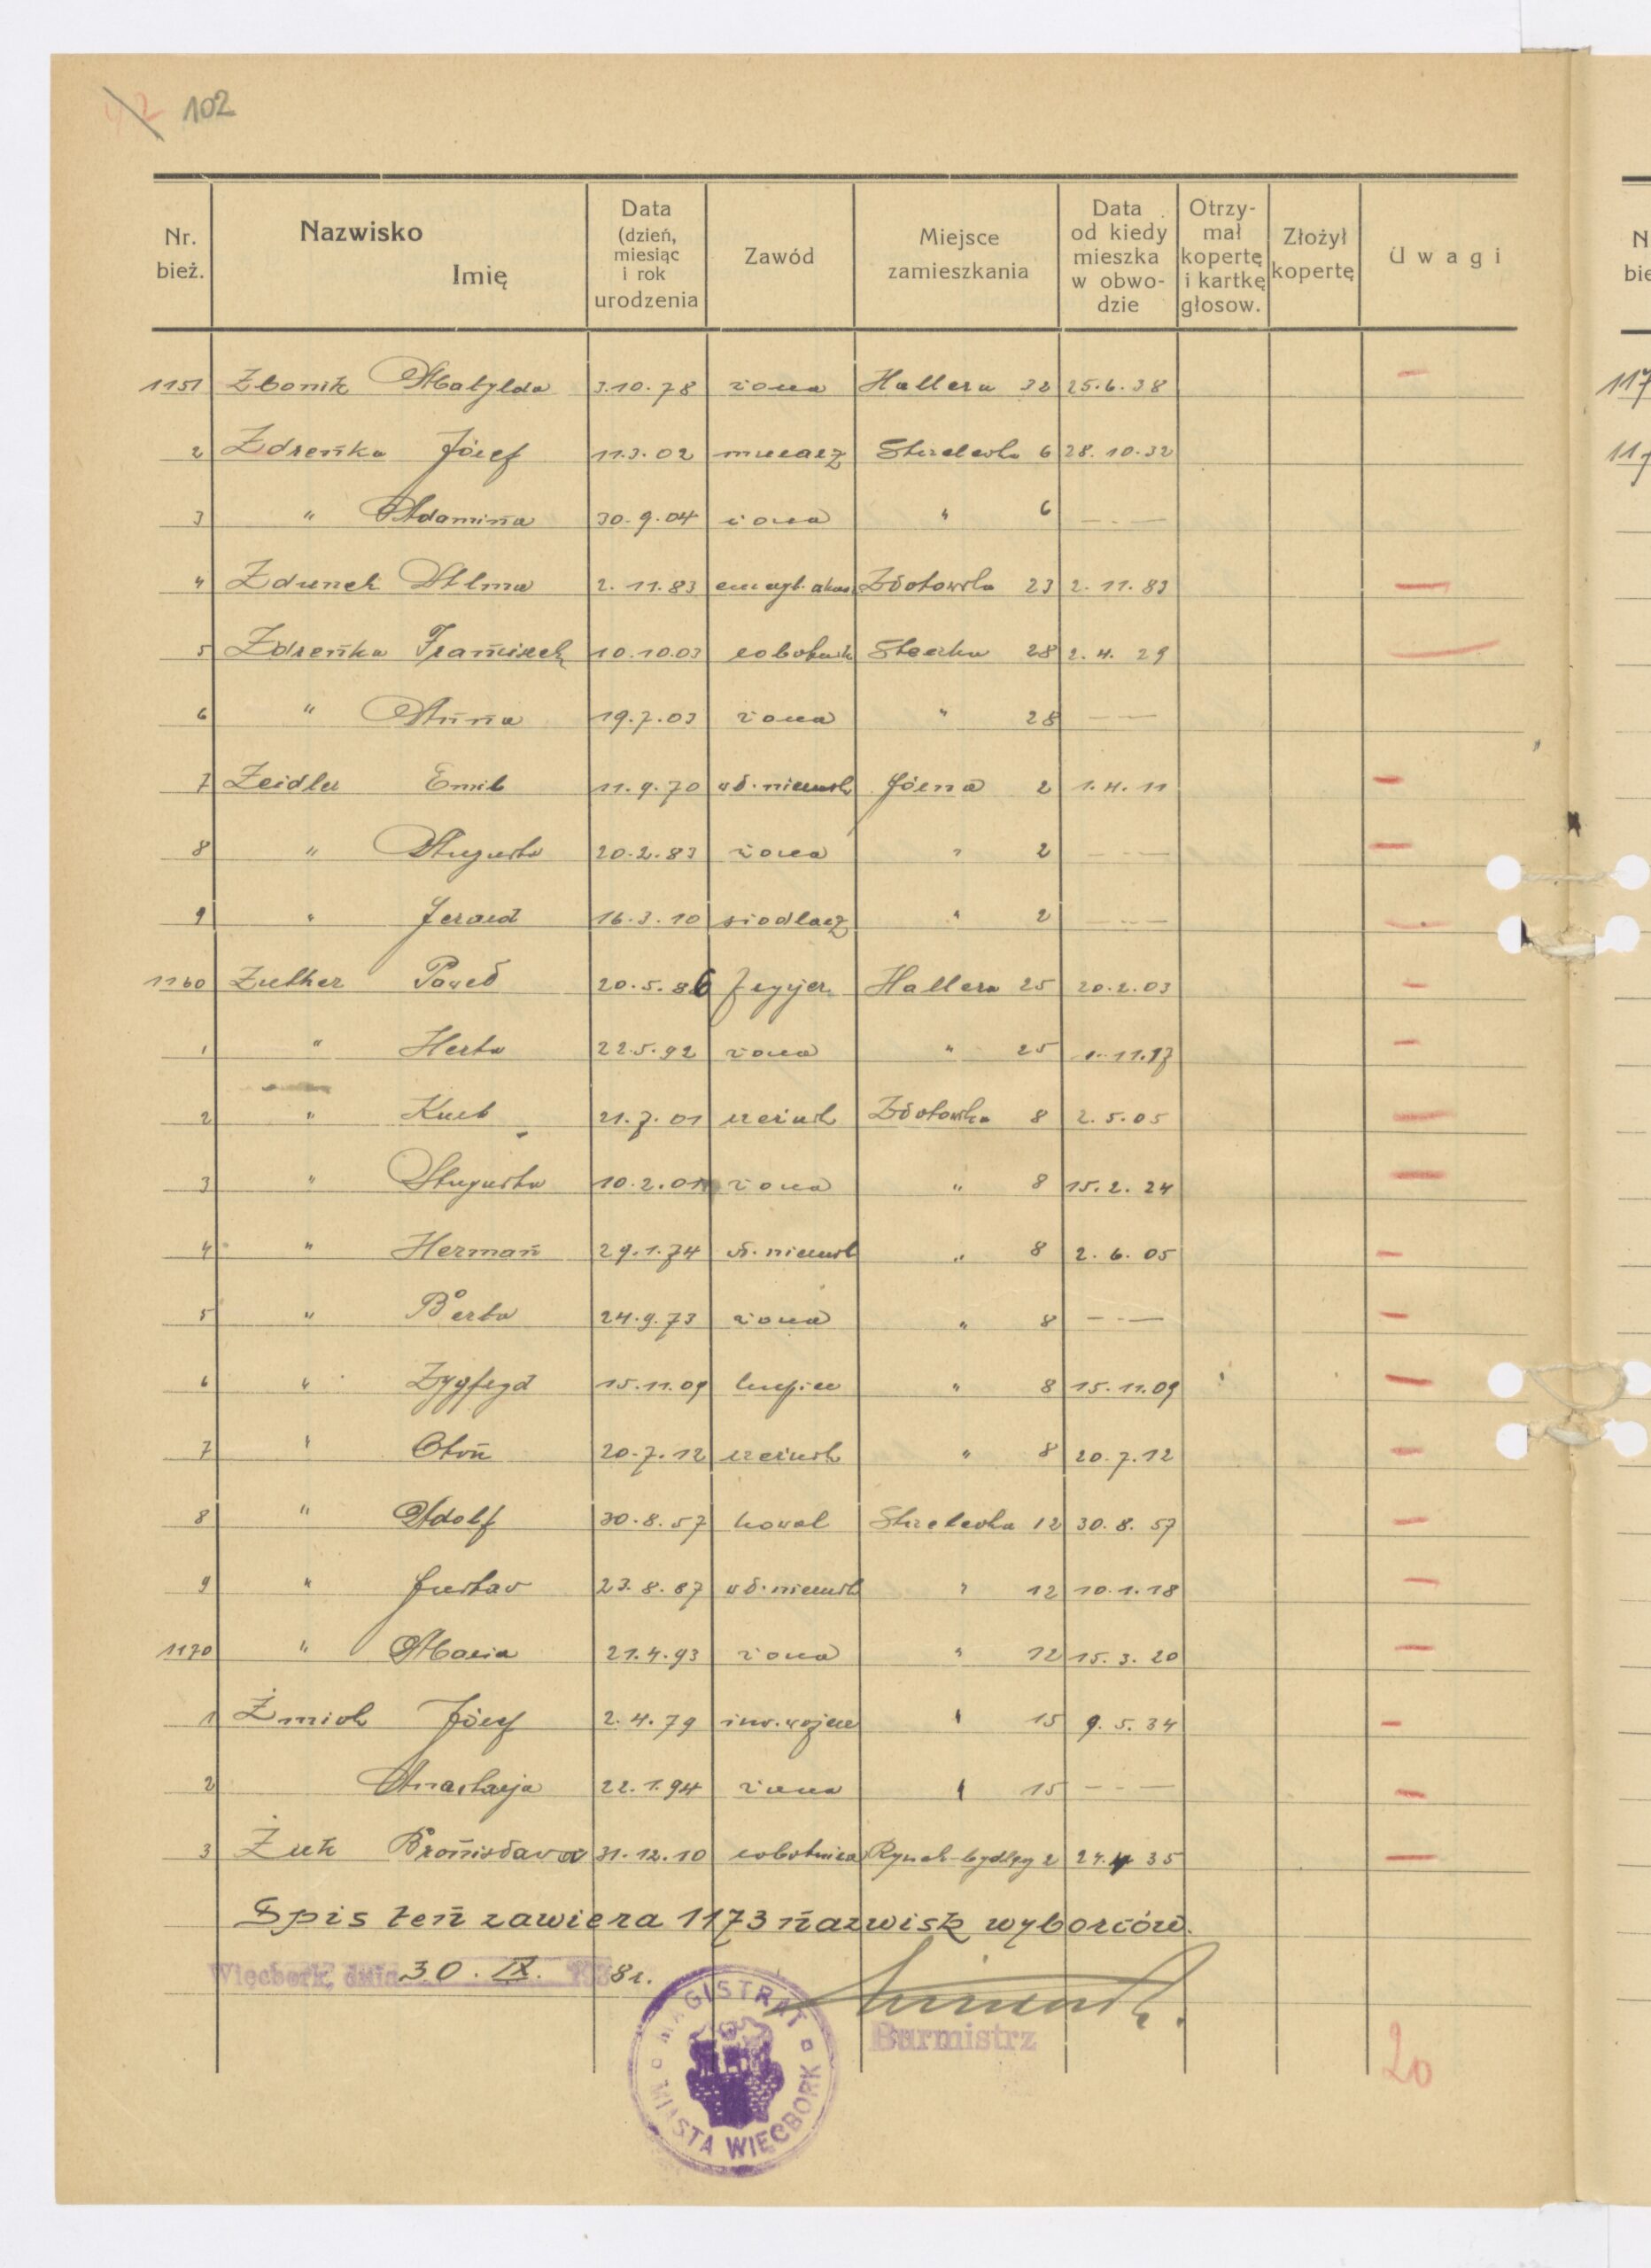 102
Nr. bież. Nazwisko Imię Data (dzień, miesiąc i rok urodzenia Zawód Miejsce zamieszkania Data od kiedy mieszka w obwodzie Otrzymał kopertę i kartkę głosow. Złożył kopertę Uwagi
1151 Matylda 3.10.78 żona Hallera 32 25.6.38
2 Zdrenka Józef 11.3.02 murarz Strzelecka 6 28.10.32
3 " Adamina 30.9.04 żona " 6 — - —
4 Zdunek Alma 2.11.83 Złotowska 23 2.11.83
5 Zdrenka Franciszek 10.10.03 robotnik 28 2.4.29
6 " Anna 19.7.03 żona " 28 — —
7 Zeidler Emil 11.9.70 wł. nieruch 2 1.4.11
8 " Augusta 20.2.83 żona " 2 — - —
9 " Gerard 16.3.10 siodlarz " 2 — - —
1160 Zuther Paweł 20.5.86 fryzjer Hallera 25 20.2.03
1 " Herta 22.5.92 żona " 25 1.11.17
2 " Kurt 21.7.01 rzeźnik Złotowska 8 2.5.05
3 " Augusta 10.2.01 żona " 8 15.2.24
4 " Herman 29.1.74 wł. nieruch " 8 2.6.05
5 " Berta 24.9.73 żona " 8 — - —
6 " Zygfryd 15.11.09 kupiec " 8 15.11.09
7 " Oton 20.7.12 rzeźnik " 8 20.7.12
8 " Adolf 30.8.57 kowal Strzelecka 12 30.8.57
9 " Gustav 23.8.87 wł. nieruch " 12 10.1.18
1170 " Maria 21.4.93 żona " 12 15.3.20
1 Żmich Józef 2.4.79 inw. wojen " 15 9.5.34
2 Anastazja 22.1.94 żona " 15 — - —
3 Żuk Bronisława 31.12.10 robotnica Rynek bydlęcy 2 24.4 35
Spis ten zawiera 1173 nazwisk wyborców.
Więcbork, dnia 30. IX. 1938 r.
MAGISTRAT MIASTA WIĘCBORK
Burmistrz
20